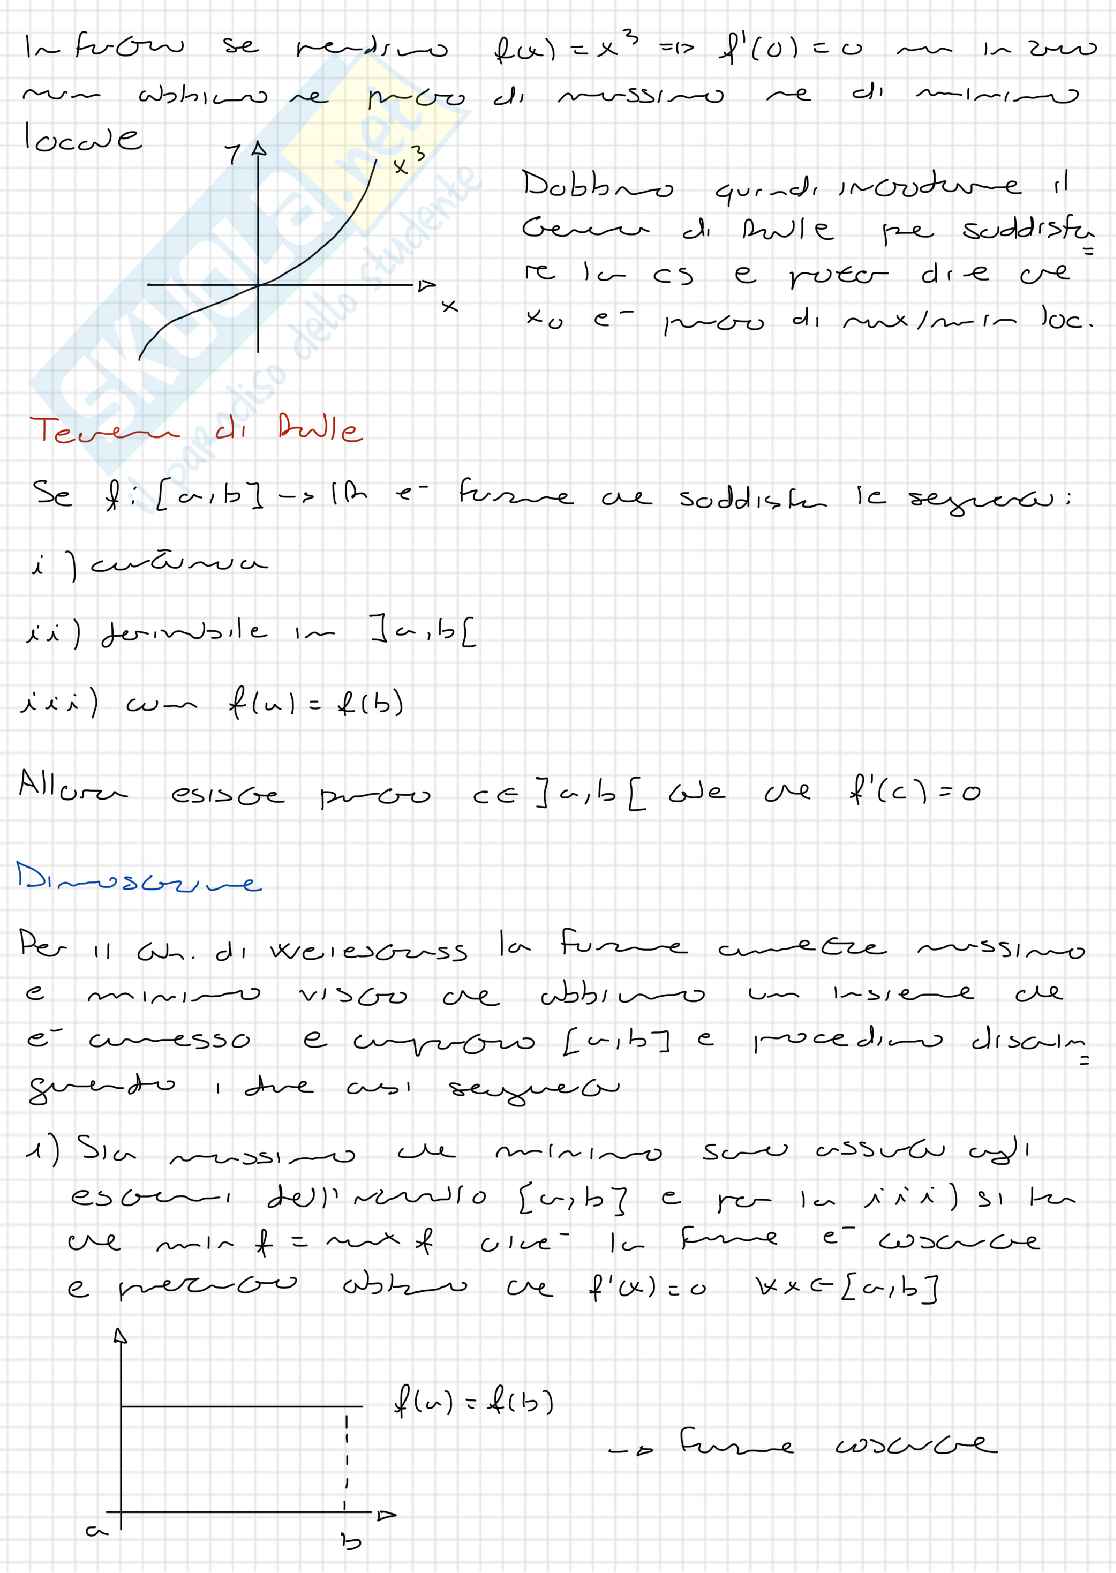 Infatti se prendiamo f(x) = x³ => f'(0) = 0 ma in zero
non abbiamo né punto di massimo né di minimo
locale
y
x³
x
Dobbiamo quindi introdurre il
teorema di Rolle per soddisfa=
re la cs e poter dire che
x₀ è punto di max/min loc.
SKUOLA.net
il paradiso dello studente
Teorema di Rolle
Se f: [a,b] -> ℝ è funzione che soddisfa le seguenti:
i) continua
ii) derivabile in ]a,b[
iii) con f(a) = f(b)
Allora esiste punto c ∈ ]a,b[ tale che f'(c) = 0
Dimostrazione
Per il th. di Weierstrass la funzione ammette massimo
e minimo visto che abbiamo un insieme che
è connesso e compatto [a,b] e procediamo distin=
guendo i due casi seguenti
1) Sia massimo che minimo sono assunti agli
estremi dell'intervallo [a,b] e per la iii) si ha
che min f = max f cioè la funzione è costante
e pertanto abbiamo che f'(x) = 0 ∀x ∈ [a,b]
f(a) = f(b)
-> funzione costante
a
b